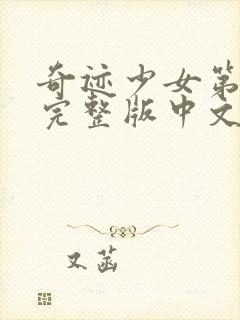 奇迹少女第
完整版中文
又菡